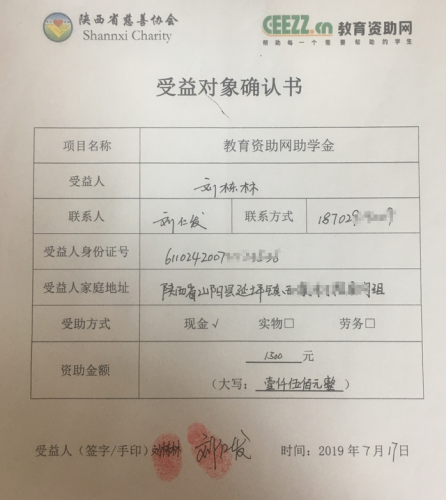 陕西省慈善协会
Shannxi Charity
CEEZZ.cn 教育资助网
帮助每一个需要帮助的学生
受益对象确认书
项目名称 教育资助网助学金
受益人 刘栋林
联系人 刘仁发 联系方式 187029
受益人身份证号 6110242007
受益人家庭地址 陕西省山阳县延坪镇 组
受助方式 现金√ 实物□ 劳务□
资助金额 1500 元
（大写：壹仟伍佰元整）
受益人（签字/手印） 刘栋林 刘仁发 时间：2019年7月17日